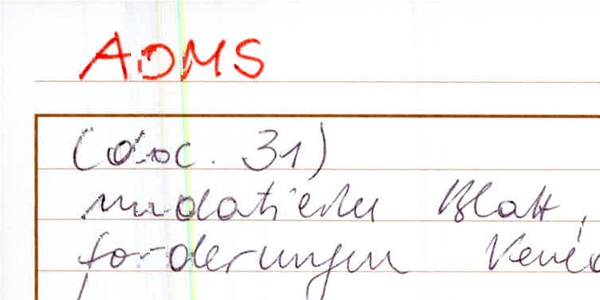 ADMS
(doc. 31)
undatiertes Blatt,
forderungen